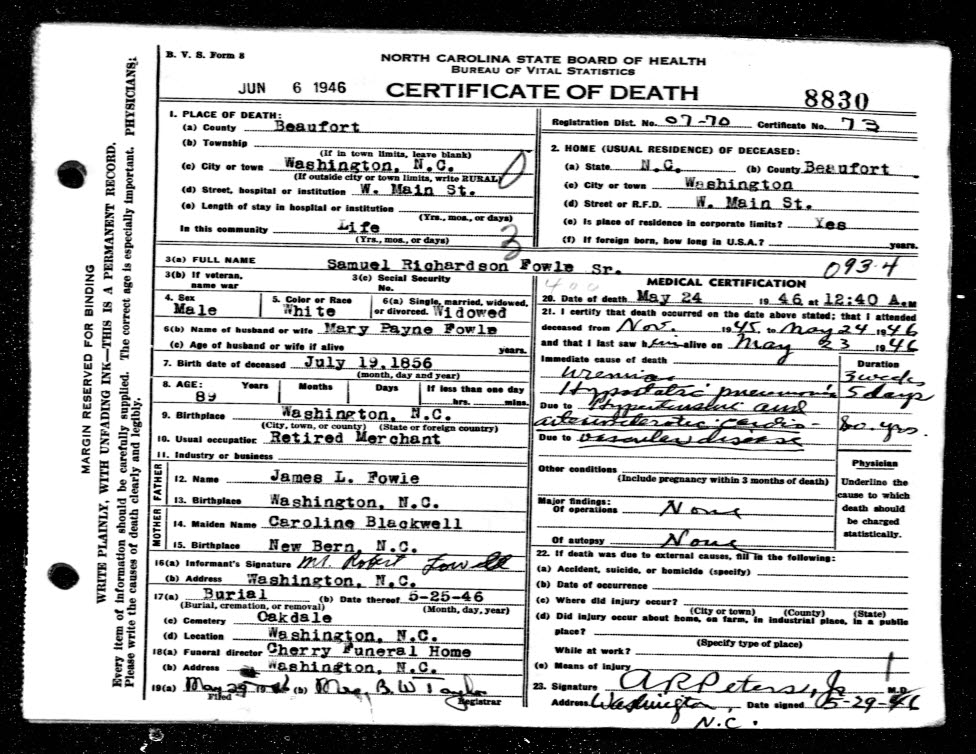 B. V. S. Form 8
NORTH CAROLINA STATE BOARD OF HEALTH
BUREAU OF VITAL STATISTICS
JUN 6 1946
CERTIFICATE OF DEATH
8830
Registration Dist. No. 07-70 Certificate No. 73
MARGIN RESERVED FOR BINDING
WRITE PLAINLY, WITH UNFADING INK—THIS IS A PERMANENT RECORD.
Every item of information should be carefully supplied. The correct age is especially important. PHYSICIANS:
Please write the causes of death clearly and legibly.
1. PLACE OF DEATH:
(a) County Beaufort
(b) Township
(If in town limits, leave blank)
(c) City or town Washington, N.C.
(If outside city or town limits, write RURAL)
0
(d) Street, hospital or institution W. Main St.
(e) Length of stay in hospital or institution
(Yrs., mos., or days)
In this community Life
(Yrs., mos., or days)
3
2. HOME (USUAL RESIDENCE) OF DECEASED:
(a) State N.C. (b) County Beaufort
(c) City or town Washington
(d) Street or R.F.D. W. Main St.
(e) Is place of residence in corporate limits? Yes
(f) If foreign born, how long in U.S.A.? years.
3(a) FULL NAME Samuel Richardson Fowle Sr.
093-4
3(b) If veteran, name war
3(c) Social Security No.
4. Sex Male
5. Color or Race White
6(a) Single, married, widowed, or divorced. Widowed
6(b) Name of husband or wife Mary Payne Fowle
(c) Age of husband or wife if alive years.
7. Birth date of deceased July 19, 1856
(month, day and year)
8. AGE: Years Months Days If less than one day
89 hrs. mins.
9. Birthplace Washington, N.C.
(City, town, or county) (State or foreign country)
10. Usual occupation Retired Merchant
11. Industry or business
FATHER
12. Name James L. Fowle
13. Birthplace Washington, N.C.
MOTHER
14. Maiden Name Caroline Blackwell
15. Birthplace New Bern, N.C.
16(a) Informant's Signature Mr. Robert
(b) Address Washington, N.C.
17(a) Burial (b) Date thereof 5-25-46
(Burial, cremation, or removal) (Month, day, year)
(c) Cemetery Oakdale
(d) Location Washington, N.C.
18(a) Funeral director Cherry Funeral Home
(b) Address Washington, N.C.
19(a) May 29 1946 (b) Mrs. B. W. Taylor
Filed Registrar
MEDICAL CERTIFICATION
400
20. Date of death May 24 1946 at 12:40 A.M
21. I certify that death occurred on the date above stated; that I attended
deceased from Nov. 1945 to May 24 1946
and that I last saw him alive on May 23 1946
Immediate cause of death Duration
Uremia 3 weeks
Hypostatic pneumonia 5 days
Due to Hypertensive and
arteriosclerotic cardio- yrs.
Due to vascular disease
Other conditions
(Include pregnancy within 3 months of death)
Major findings:
Of operations None
Of autopsy None
Physician
Underline the cause to which death should be charged statistically.
22. If death was due to external causes, fill in the following:
(a) Accident, suicide, or homicide (specify)
(b) Date of occurrence
(c) Where did injury occur?
(City or town) (County) (State)
(d) Did injury occur about home, on farm, in industrial place, in a public
place?
(Specify type of place)
While at work?
(e) Means of injury
1
23. Signature A R Peters, Jr M.D.
Address Washington, N.C. Date signed 5-29-46